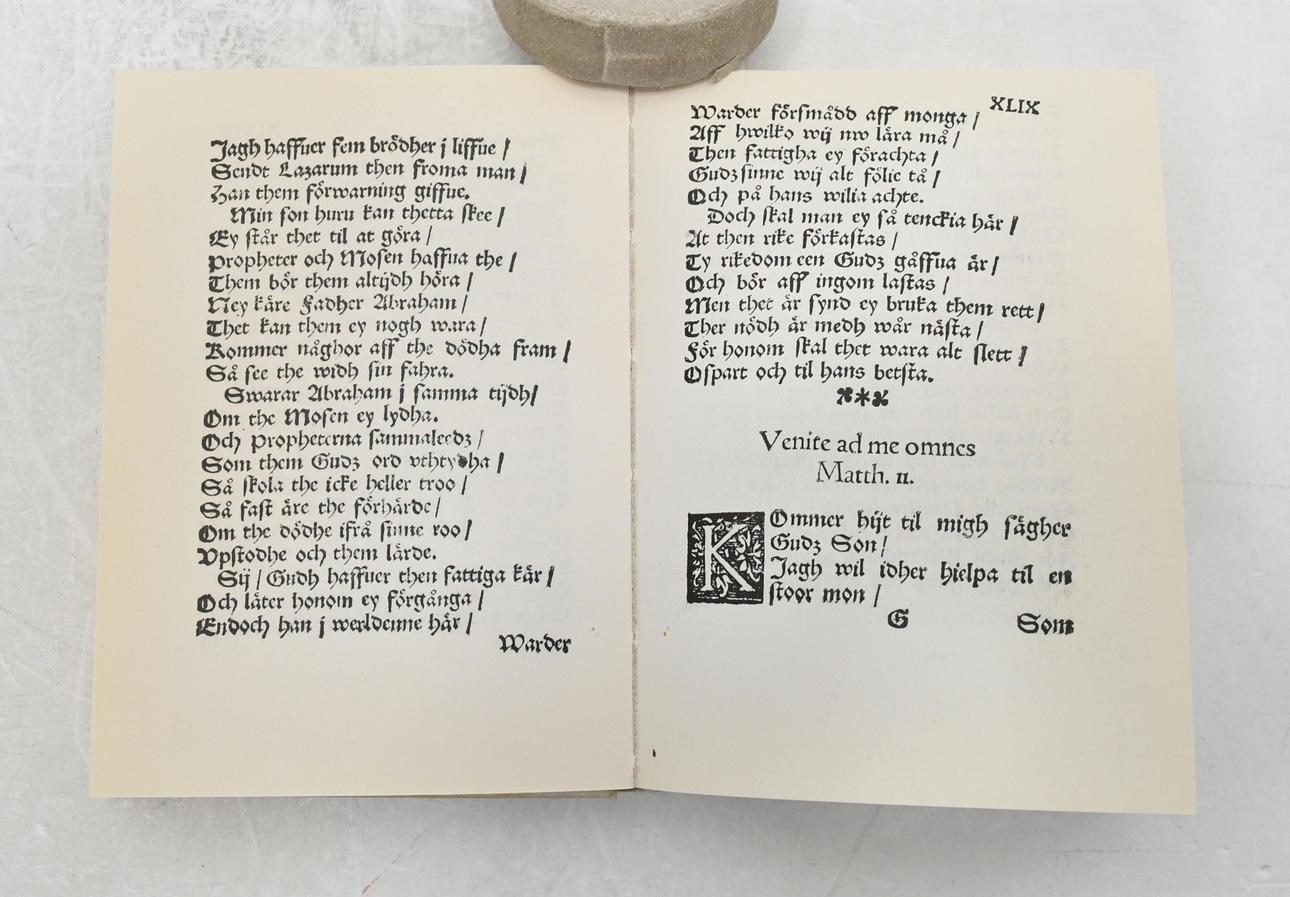 Jagh haffuer fem brödher j liffue /
Sendt Lazarum then froma man /
Han them förwarning giffue.
Min son huru kan thetta skee /
Ey står thet til at göra /
Propheter och Mosen haffua the /
Them bör them altijdh höra /
Ney käre Fadher Abraham /
Thet kan them ey nogh wara /
Kommer någhor aff the dödha fram /
Så see the widh sin fahra.
Swarar Abraham j samma tijdh /
Om the Mosen ey lydha.
Och Propheterna sammaleedz /
Som them Gudz ord vthtydha /
Så skola the icke heller troo /
Så fast äre the förhärde /
Om the dödhe ifrå sinne roo /
Vpstodhe och them lärde.
Sij / Gudh haffuer then fattiga kär /
Och låter honom ey förgånga /
Endoch han j werldenne här /
Warder
XLIX
Warder försmådd aff monga /
Aff hwilko wij nw lära må /
Then fattigha ey förachta /
Gudz sinne wij alt fölie tå /
Och på hans wilia achte.
Doch skal man ey så tenckia här /
At then rike förkastas /
Ty rikedom een Gudz gåffua är /
Och bör aff ingom lastas /
Men thet är synd ey bruka them rett /
Ther nödh är medh wår nästa /
För honom skal thet wara alt slett /
Ospart och til hans betsta.
Venite ad me omnes
Matth. 11.
KOmmer hijt til migh sägher
Gudz Son /
Jagh wil idher hielpa til en
stoor mon /
G Som